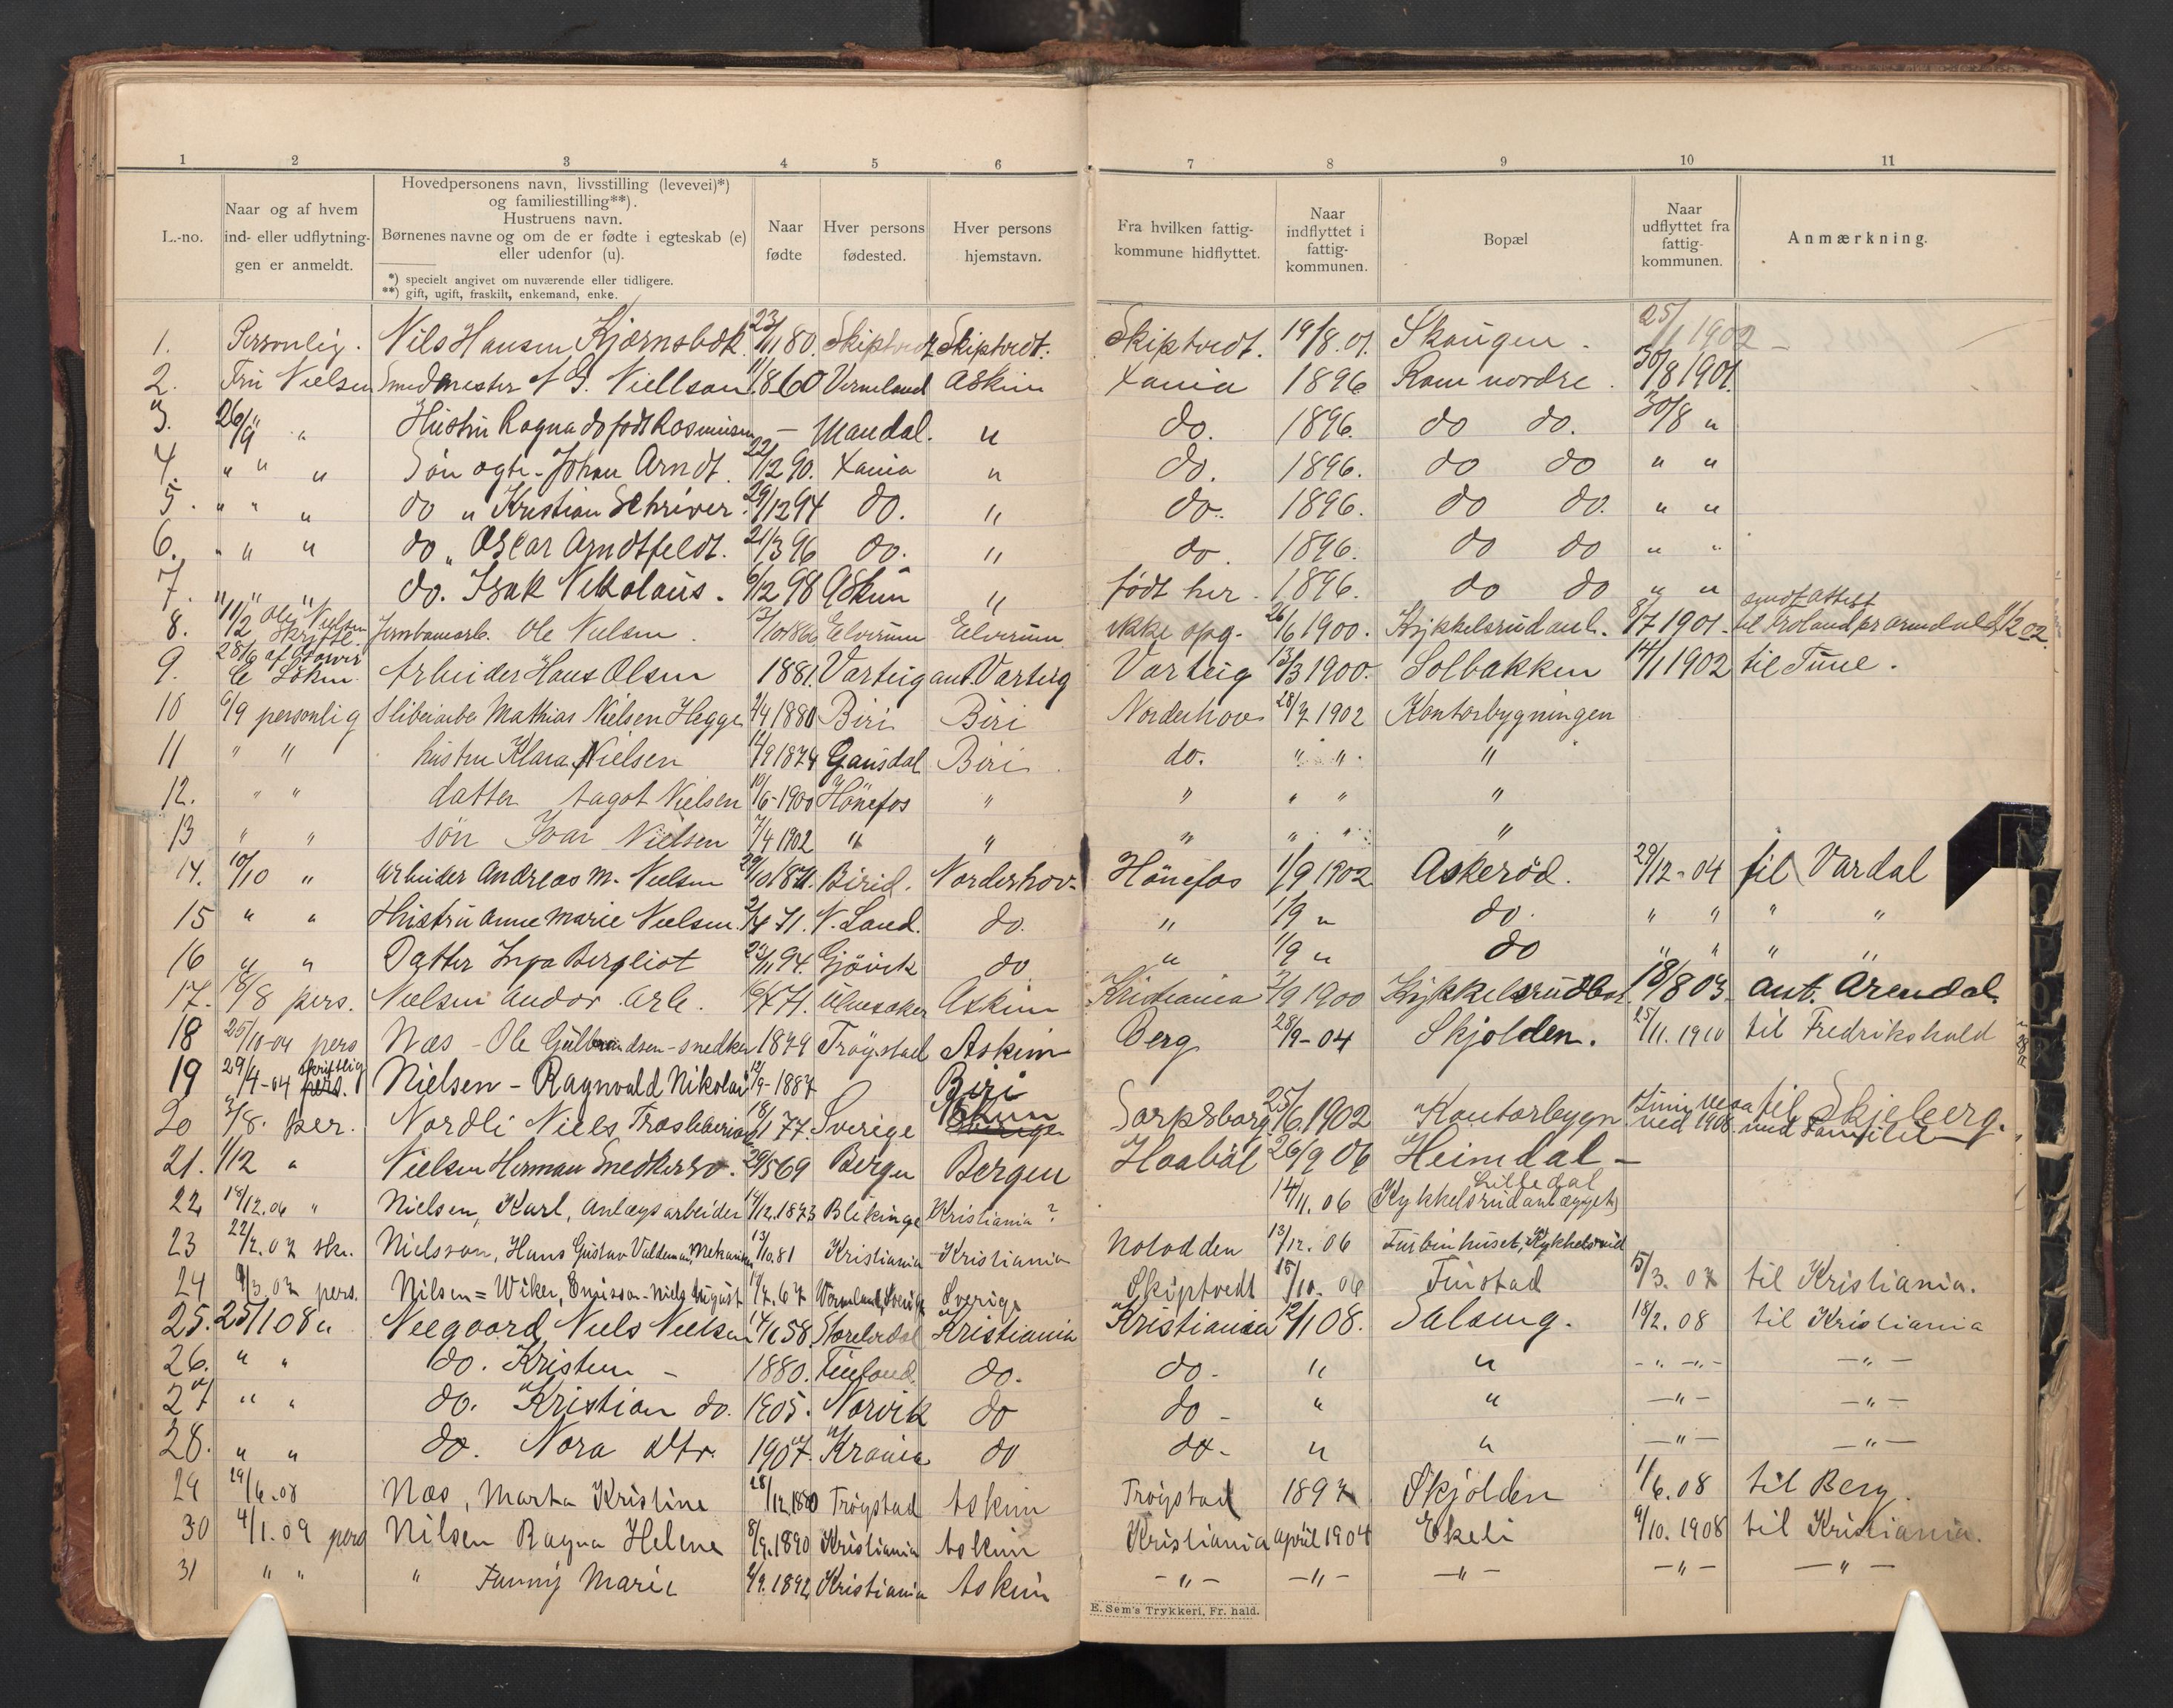 1 2 3 4 5 6 7 8 9 10 11
L.-no. | Naar og af hvem ind- eller udflytningen er anmeldt. | Hovedpersonens navn, livsstilling (levevei)*) og familiestilling**). Hustruens navn. Børnenes navne og om de er fødte i egteskab (e) eller udenfor (u). *) specielt angivet om nuværende eller tidligere. **) gift, ugift, fraskilt, enkemand, enke. | Naar fødte | Hver persons fødested. | Hver persons hjemstavn. | Fra hvilken fattigkommune hidflyttet. | Naar indflyttet i fattigkommunen. | Bopæl | Naar udflyttet fra fattigkommunen. | Anmærkning.
1. Personlig. Nils Hansen Kjærnsbæk 23/1 80. Skiptvedt Skiptvedt. Skiptvedt. 19/8.01. Skaugen. 25/1 1902
2. Fru Nielsen Smedmester N G. Niellson 60 Vermland Askim Xania 1896 Rom nordre. 30/8 1901.
3. 26/9 " Hustru Ragna do født Rasmusen — Mandal. " do. 1896. do do. 30/8 "
4. " " " Søn ægte - Johan Arndt. 22/12 90. Xania " do. 1896. do do " "
5. " " " do " Kristian Schriver. 29/12 94 do. " do. 1896. do do. " "
6. " " " do " Oscar Arndtfeldt. 21/3 96 do. " do. 1896. do do " "
7. " " " do. Isak Nikolaus. 6/12 98 Askim " født her. 1896. do do " "
8. 11/2 Ole Nielsen Skriftl. Jernbanearb. Ole Nielsen. 13/10 1866 Elverum Elverum ikke opg. 26/6 1900. Kykkelsrud anl. 8/7 1901. sendt attest til Froland pr Arendal 02.
9. 28/6 af Løken Arbeider Hans Olsen 1881. Varteig ant. Varteig Varteig 13/3 1900. Solbakken 14/1 1902 til Tune.
10 6/9 personlig Sliberiarbe Mathias Nielsen Hegge 2/4 1880 Biri Biri Norderhov 28/7 1902 Kontorbygningen
11 " " hustru Klara Nielsen 12/9 1874 Gausdal Biri do. " " "
12. " " datter Aagot Nielsen 10/6-1900 Hönefos " " " " "
13 " " søn Ivar Nielsen 7/4 1902 " " " " " "
14. 10/10 " Arbeider Andreas M. Nielsen 29/10 1871. Birid. Norderhov. Hönefos 1/9 1902 Askerød. 29/12-04 til Vardal
15 " " Hustru Anne Marie Nielsen. 71. N. Land. do. " 1/9 " do. " " " "
16 " " Datter Inga Bergliot 22/11 94. Gjøvik do " 1/9 " do " " " "
17. 18/8 pers. Nielsen Andor Arb. 71. Ullensaker Askim Kristiania 2/9 1900 Kykkelsrudbot. 18/8 03 ant. Arendal.
18 25/10-04 pers Næs - Ole Gulbrandsen - snedker 1879 Trøgstad Askim Berg 28/9-04 Skjolden. 25/11. 1910 til Fredrikshald
19 29/4-04 skriftlig pers. Nielsen - Ragnvald Nikolai 12/9-1887 Biri
20 3/8. per. Nordli Niels Træsliberiarb 18/1 77. Sverige Askim Sarpsborg 25/6.1902 Kontorbygn 1908 til Skjeberg. med Familie
21. 1/12 " Nielsen Herman Snedkersv. 29/5 69 Bergen Bergen Haabøl 26/9 06 Heimdal -
22 18/12.06 " Nielsen, Karl, anlægsarbeider 14/12.1873 Blekinge Kristiania? 14/11.06 Lilledal (Kykkelsrudanlægget)
23 22/2.07 skr. Nielsson, Hans Gustav Valdemar, Mekaniker 13/10.81 Kristiania Kristiania Notodden 13/12.06 Turbinhuset, Kykkelsrud
24 9/3.07 pers. Nilsen = Wiker, Niels August 67 Vermland, Sverige Sverige Skiptvedt 15/10.06 Finstad 5/3.07 til Kristiania.
25. 25/1 08 " Neegaard Niels Nielsen 58. Storelvdal Kristiania Kristiania 12/1 08. Salseng. 18/2.08 til Kristiania
26. " " do. Kristen - 1880. Finland do. do - " " - " - " - - " -
27 " " do. Kristian do. 1905. Narvik do do - " " - " - - " -
28. " " do. Nora dtr. 1907. Krania do do - " " - " - - " -
29 29/6.08 Næs, Marta Kristine 28/12.1880 Trøgstad Askim Trøgstad 1897 Skjolden 1/6.08 til Berg.
30 4/1.09 pers Nilsen Ragna Helene 8/9.1890 Kristiania Askim Kristiania april 1904 Ekeli 9/10.1908 til Kristiania.
31 " " " Fanny Marie 4/9.1892 Kristiania Askim - " - - " - - " - - " - - " -
E. Sem's Trykkeri, Fr. hald.